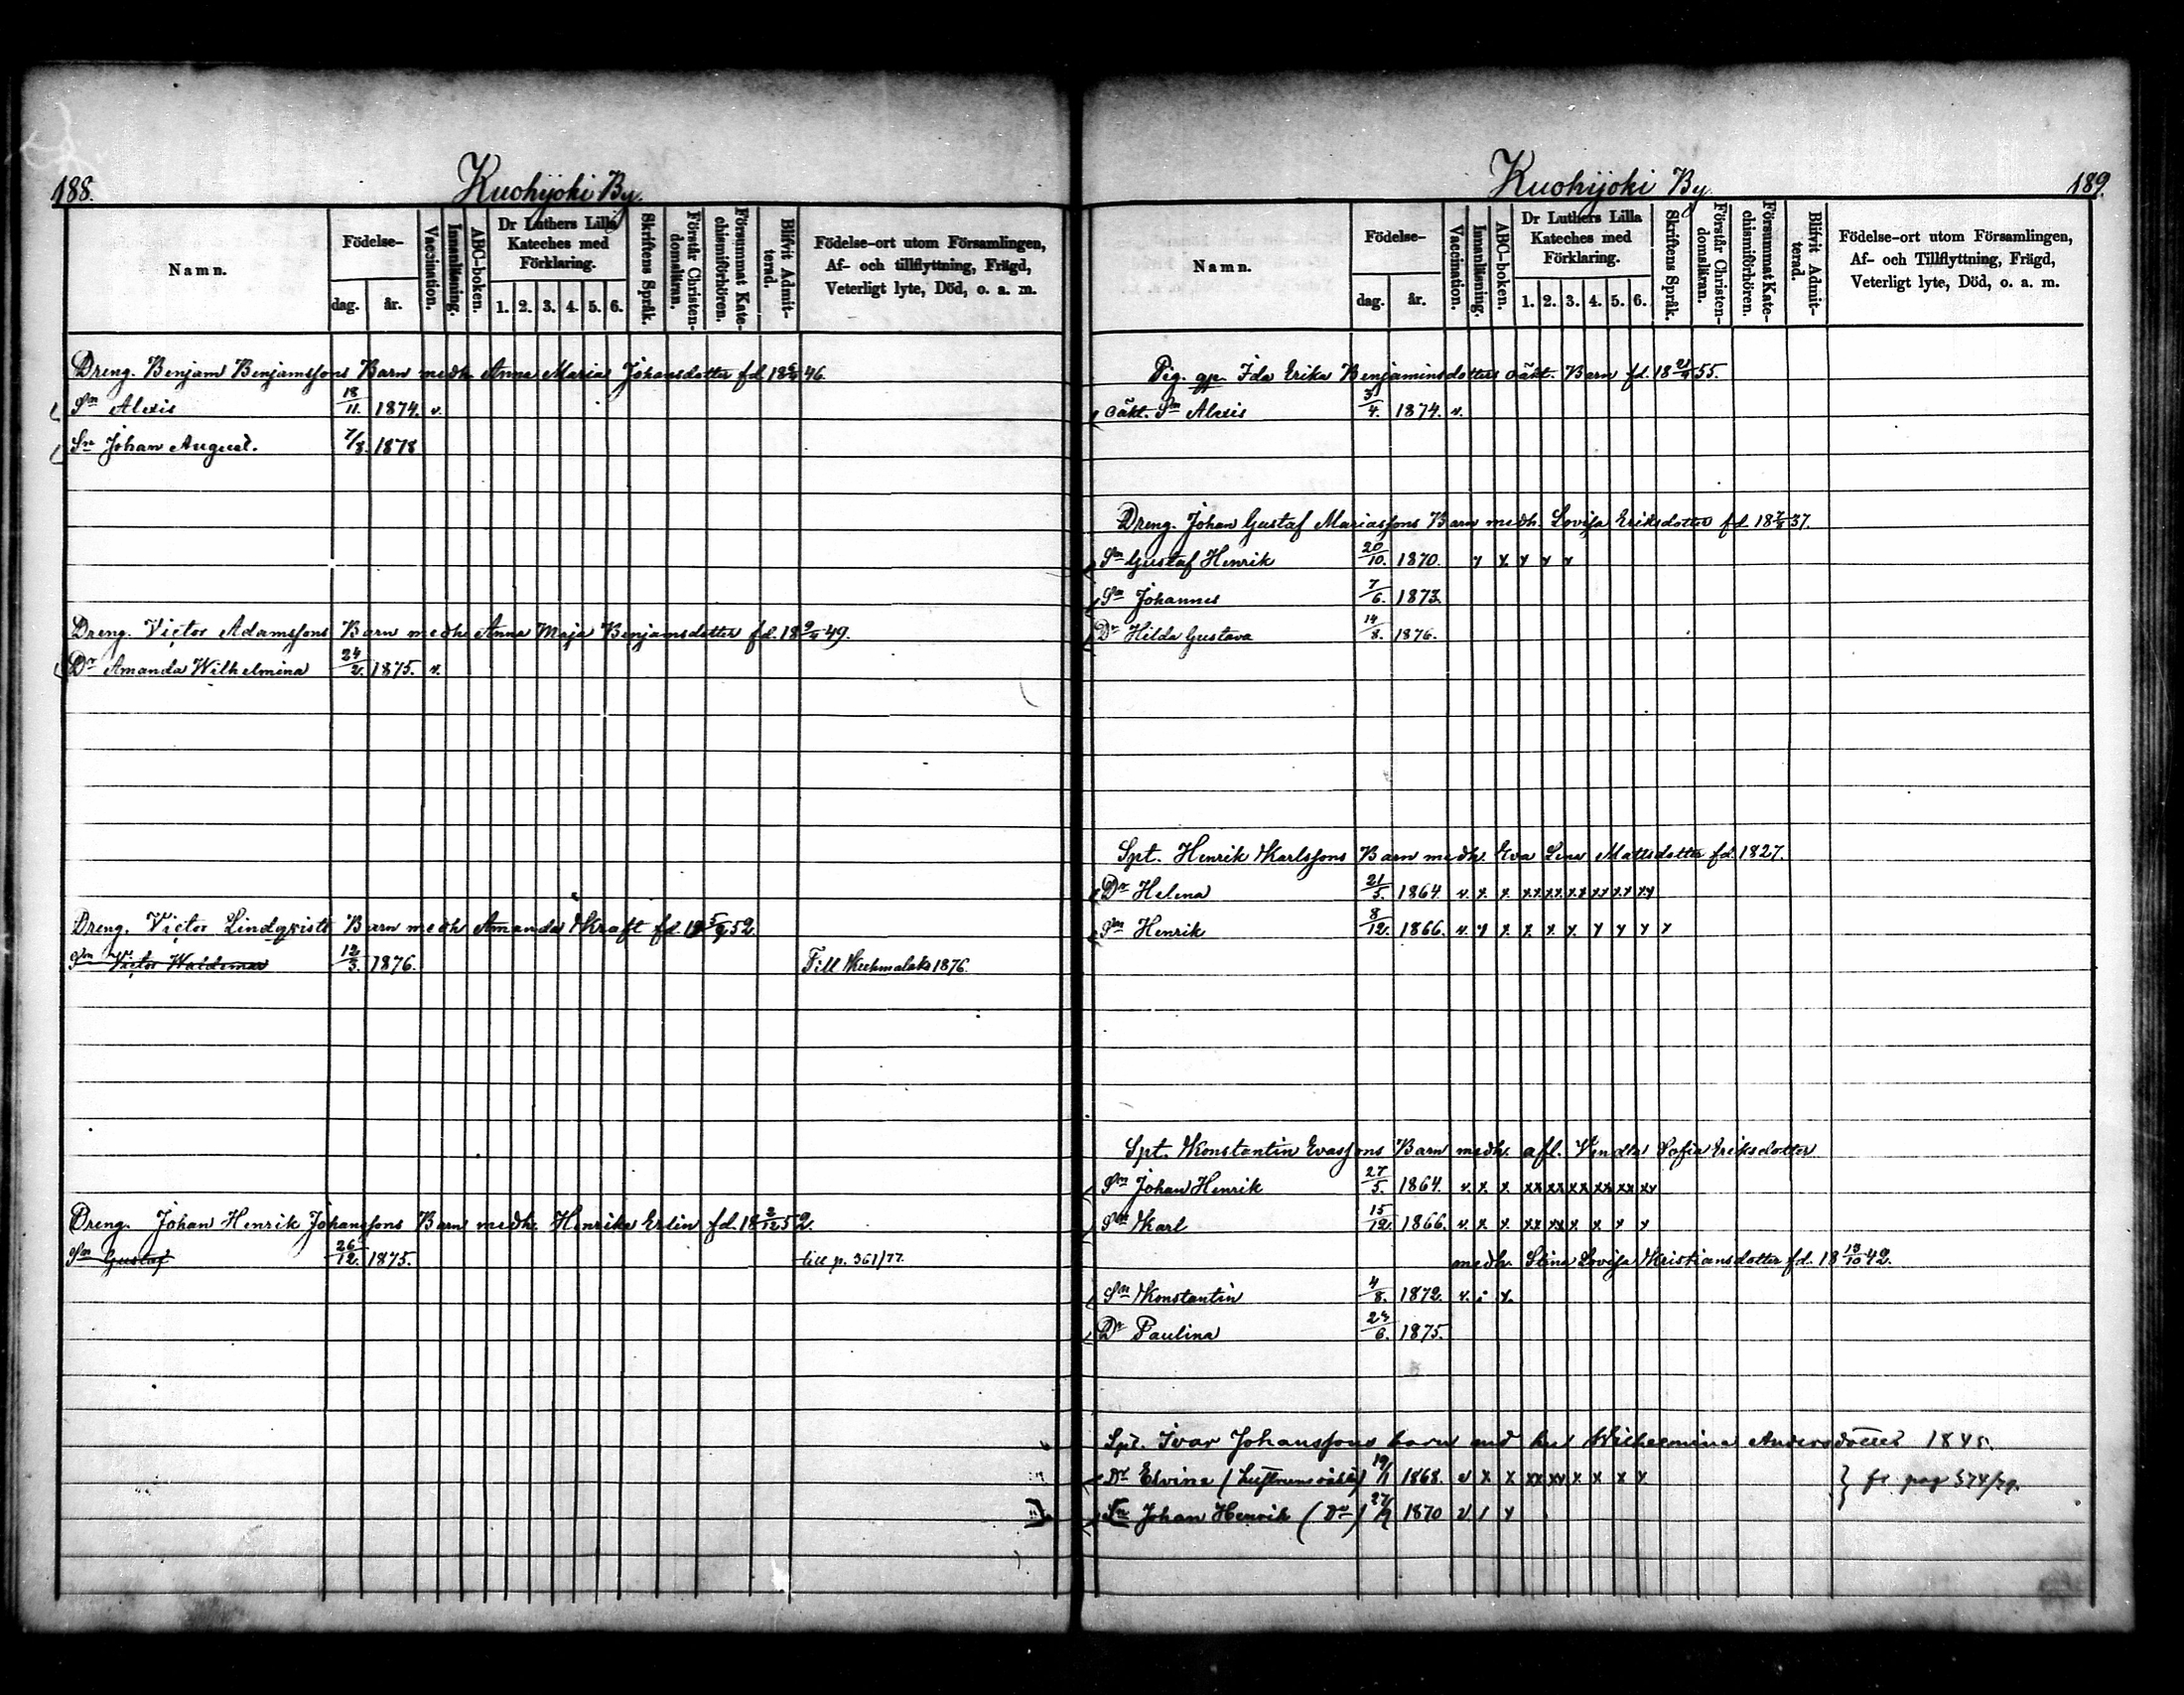 188.
Kuohijoki By.
Namn.
Födelse-
dag.
år.
Vaccination.
Innanläsning.
ABC-boken.
Dr Luthers Lilla
Kateches med
Förklaring.
1. 2. 3. 4. 5. 6.
Skriftens Språk.
Förstår Christen-
domsläran.
Försummat Kate-
chismiförhören.
Blifvit Admit-
terad.
Födelse-ort utom Församlingen,
Af- och tillflyttning, Frägd,
Veterligt lyte, Död, o. a. m.
Dreng. Benjam Benjamssons Barn medh. Anna Maria Johansdotter fd. 46.
Sn Alexis 18/11. 1874. v.
Sn Johan August. 7/8. 1878
Dreng. Victor Adamssons Barn medh. Anna Maja Benjamsdotter fd. 18 9/4 49.
Dr Amanda Wilhelmina 24/2. 1875. v.
Dreng. Victor Lindqvists Barn medh. Amanda Kraft fd. 52.
Sn Victor Waldemar 12/3. 1876. Till Kuhmalaks 1876.
Dreng. Johan Henrik Johanssons Barn medh. Henrika Erlin fd. 18 2/12 52.
Sn Gustaf 26/12. 1875. till p. 361/77.
Kuohijoki By.
189.
Namn.
Födelse-
dag.
år.
Vaccination.
Innanläsning.
ABC-boken.
Dr Luthers Lilla
Kateches med
Förklaring.
1. 2. 3. 4. 5. 6.
Skriftens Språk.
Förstår Christen-
domsläran.
Försummat Kate-
chismiförhören.
Blifvit Admit-
terad.
Födelse-ort utom Församlingen,
Af- och Tillflyttning, Frägd,
Veterligt lyte, Död, o. a. m.
Pig. qp. Ida Erika Benjaminsdotters oäkt. Barn fd. 55.
oäkt. Sn Alexis 3/4. 1874. v.
Dreng. Johan Gustaf Mariassons Barn medh. Lovisa Eriksdotter fd. 37.
Sn Gustaf Henrik 20/10. 1870. x x x x x
Sn Johannes 7/6. 1873.
Dr Hilda Gustava 14/8. 1876.
Spt. Henrik Karlssons Barn medh. Eva Lena Mattsdotter fd. 1827.
Dr Helena 21/5. 1864 v. x x xx xx xx xx xx xx
Sn Henrik 8/12. 1866. v. x x x x x x x x x
Spt. Konstantin Evassons Barn medh. afl. Vendla Sofia Eriksdotter
Sn Johan Henrik 27/5. 1864. v. x x xx xx xx xx xx xx
Sn Karl 15/12. 1866. v. x x xx xx x x x x
medh. Stina Lovisa Kristiansdotter fd. 18 13/10 42.
Sn Konstantin 4/8. 1872. v. i x.
Dr Paulina 1875.
Spt. Ivar Johanssons barn med hu Wilhelmina Andersdotter 1845.
Dr Elvina 19/1 1868. v x x xx xx x x x x
} fr. pag 374/79.
Sn Johan Henrik (Do) 1870 v / x